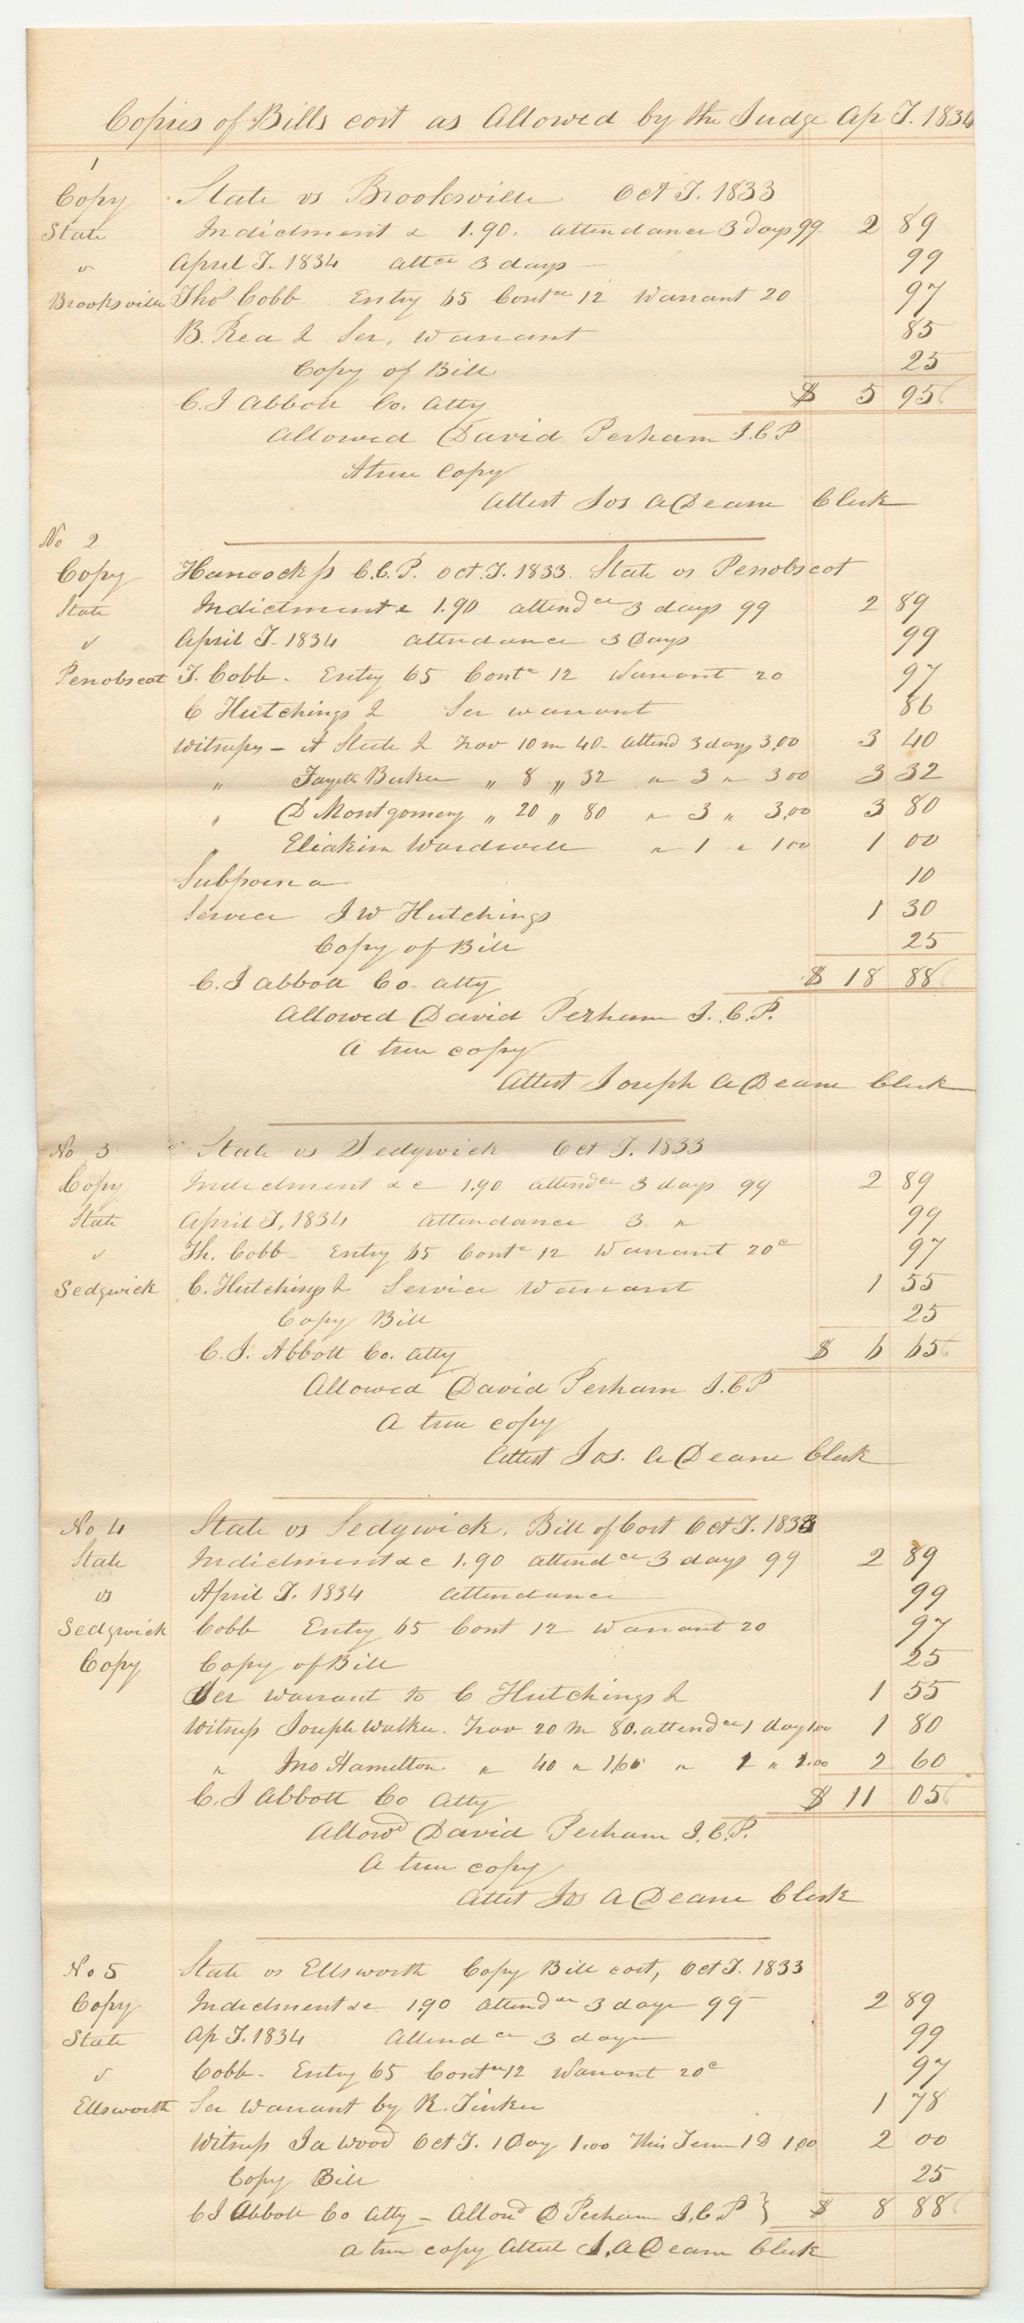 Copies of Bills cost as Allowed by the Judge Ap T. 1834
1
Copy State vs Brooksville Oct T. 1833
State Indictment & 1.90. attendance 3 Days 99 2 89
v April T. 1834 attce 3 days 99
Brooksville Thos Cobb Entry 65 Contce 12 Warrant 20 97
B. Rea 2d Ser, Warrant 85
Copy of Bill 25
C. J Abbott Co. Atty $ 5 95
Allowed David Perham J.C.P
A true Copy
Attest Jos A Deane Clerk
No 2
Copy Hancock ss C.C.P. Oct. T. 1833. State vs Penobscot
State Indictment & 1.90 attendce 3 days 99 2 89
v April T. 1834 attendance 3 Days 99
Penobscot T. Cobb. Entry 65 Contce 12 Warrant 20 97
C Hutchings 2 Ser warrant 86
Witness — A Steele 2 Trav 10 m 40 - attend 3 days 3,00 3 40
" Fayette Buker " 8 " 32 " 3 " 3 00 3 32
" D Montgomery " 20 " 80 " 3 " 3,00 3 80
" Eliakim Wardwell " 1 " 1 00 1 00
Subpoena 10
Service J W Hutchings 1 30
Copy of Bill 25
C. J Abbott Co. Atty $ 18 88
Allowed David Perham J. C. P.
A true copy
Attest Joseph A Deane Clerk
No 3 State vs Sedgwick Oct T. 1833
Copy Indictment &c 1.90 attendce 3 days 99 2 89
State April T, 1834 attendance 3 " 99
v Th. Cobb - Entry 65 Contce 12 Warrant 20c 97
Sedgwick C. Hutchings 2 Service Warrant 1 55
Copy Bill 25
C. J. Abbott Co. Atty $ 6 65
Allowed David Perham J.C.P
A true copy
Attest Jos. A Deane Clerk
No 4 State vs Sedgwick, Bill of Cost Oct T. 1833
State Indictment &c 1.90 attendce 3 days 99 2 89
vs April T. 1834 Attendance 99
Sedgwick Cobb Entry 65 Cont 12 Warrant 20 97
Copy Copy of Bill 25
Ser Warrant to C Hutchings 2 1 55
Witness Joseph Walker. Trav 20 m 80. attendce 1 day 1 00 1 80
" Jno Hamilton " 40 " 1,60 " 1 " 1.00 2 60
C. J Abbott Co Atty $ 11 05
Allowd David Perham J. C. P.
A true copy
Attest Jos A Deane Clerk
No 5 State vs Ellsworth Copy Bill cost, Oct T. 1833
Copy Indictment &c 1.90 attendce 3 days 99 2 89
State Ap T. 1834 Attendce 3 days 99
v Cobb - Entry 65 Contce 12 Warrant 20c 97
Ellsworth Ser Warrant by R. Tinker 1 78
Witness Ja Wood Oct T. 1 Day 1.00 This Term 1 D 1,00 2 00
Copy Bill 25
C J Abbott Co Atty - Allowd D Perham J. C P } $ 8 88
A true copy Attest J. A Deane Clerk